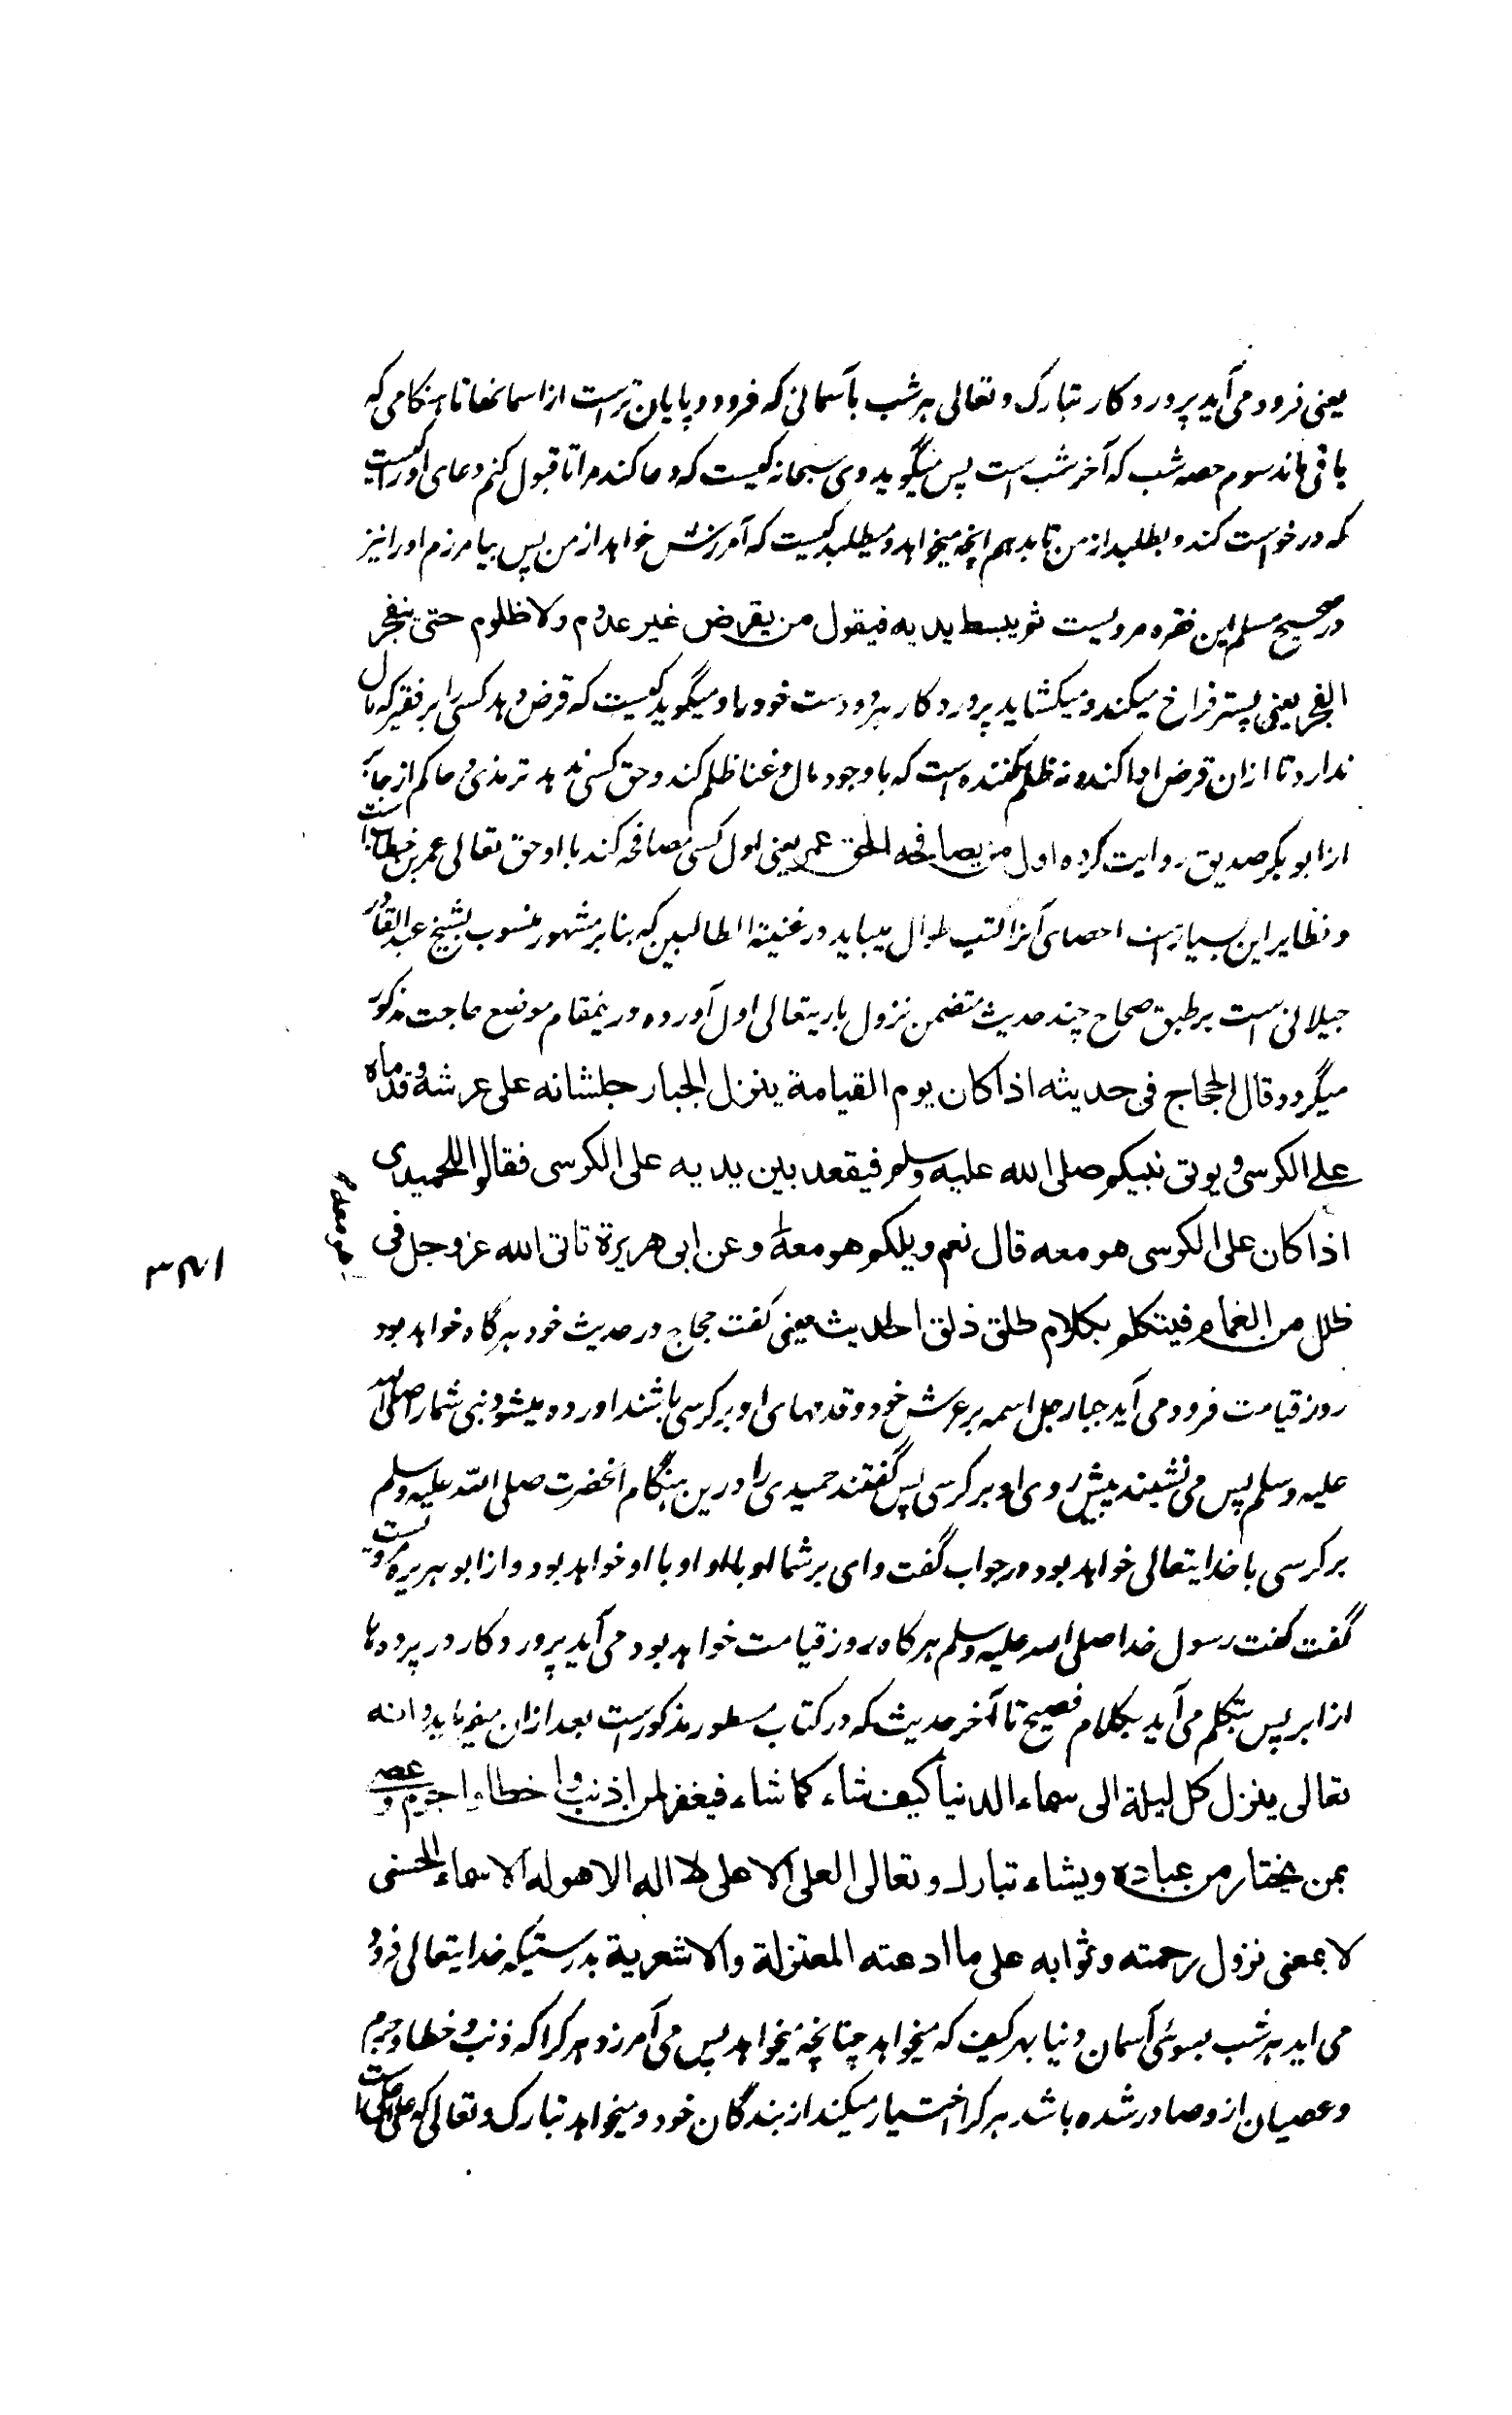 یعنی فرود می آید پروردکار تبارک و تعالی هر شب بآسمانی که فرود و پایان ترست از اسمانها تا هنکامی که
باقی ماند سوم حصه شب که آخر شب است پس میگوید وی سبحانه کیست که دعا کند مرا تا قبول کنم دعای او را کیست
که درخواست کند و بطلبد از من تا بدهم انچه میخواهد و میطلبد کیست که آمرزش خواهد از من پس بیامرزم او را نیز
در صحیح مسلم این فقره مرویست ثم یبسط یدیه فیقول من یقرض غیر عدوم ولا ظلوم حتی ینفجر
الفجر یعنی پستر فراخ میکند و میکشاید پروردکار هر دو دست خود را و میگوید کیست که قرض دهد کسی را بر فقیر که مال
ندارد تا ازان قرض ادا کند و نه ظلم کننده است که با وجود مال و غنا ظلم کند و حق کسی ندهد ترمذی و حاکم از
از ابو بکر صدیق روایت کرده اول من یصافحه الحق عمر یعنی اول کسی مصافحه کند با او حق تعالی عمر بن خطاب است
و نظایر این بسیارست احصای آنرا کتب طوال میباید در غنیة الطالبین که بنا بر مشهور منسوب بشیخ عبد القادر
جیلانی است بر طبق صحاح چند حدیث متضمن نزول باریتعالی اول آورده درینمقام موضع حاجت مذکور
میگردد قال الحجاج فی حدیثه اذا کان یوم القیامة ینزل الجبار جلشانه علی عرشه و قدماه
علی الکرسی و یوتی نبیکم صلی الله علیه وسلم فیقعد بین یدیه علی الکرسی فقالوا للحمیدی
اذا کان علی الکرسی هو معه قال نعم ویلکم هو معه وعن ابی هریرة تاتی الله عز وجل فی
هو معه
۳۴۱
ظلل من الغمام فیتکلم بکلام طلق ذلق الحدیث یعنی کفت حجاج در حدیث خود هرگاه خواهد بود
روز قیامت فرود می آید جبار جل اسمه بر عرش خود و قدمهای او بر کرسی باشند اورده میشود نبی شمارا صلی الله
علیه وسلم پس می نشیند پیش روی او بر کرسی پس گفتند حمیدی را درین هنگام انحضرت صلی الله علیه وسلم
بر کرسی با خدایتعالی خواهد بود در جواب گفت وای بر شما او با او خواهد بود و از ابو هریره مرویست
گفت کفت رسول خدا صلی الله علیه وسلم هرکاه روز قیامت خواهد بود می آید پروردکار در پرده ها
از ابر پس بتکلم می آید بکلام فصیح تا آخر حدیث که در کتاب مسطور مذکورست بعد ازان میفرماید و انه
تعالی ینزل کل لیلة الی سماء الدنیا کیف شاء کما شاء فیغفر لمن اذنب و اخطاء و اجرم و عصی
بمن یختار من عباده ویشاء تبارک وتعالی العلی الاعلی لا اله الا هو له الاسماء الحسنی
لا بمعنی نزول رحمته و ثوابه علی ما ادعته المعتزلة والاشعریة بدرستیکه خدایتعالی فرود
می اید هر شب بسوئی آسمان دنیا بهر کیف که میخواهد چنانچه میخواهد پس می آمرزد هر کرا که ذنب و خطا و جرم
و عصیان ازو صادر شده باشد هر کرا اختیار میکند از بندگان خود و میخواهد تبارک و تعالی که علی